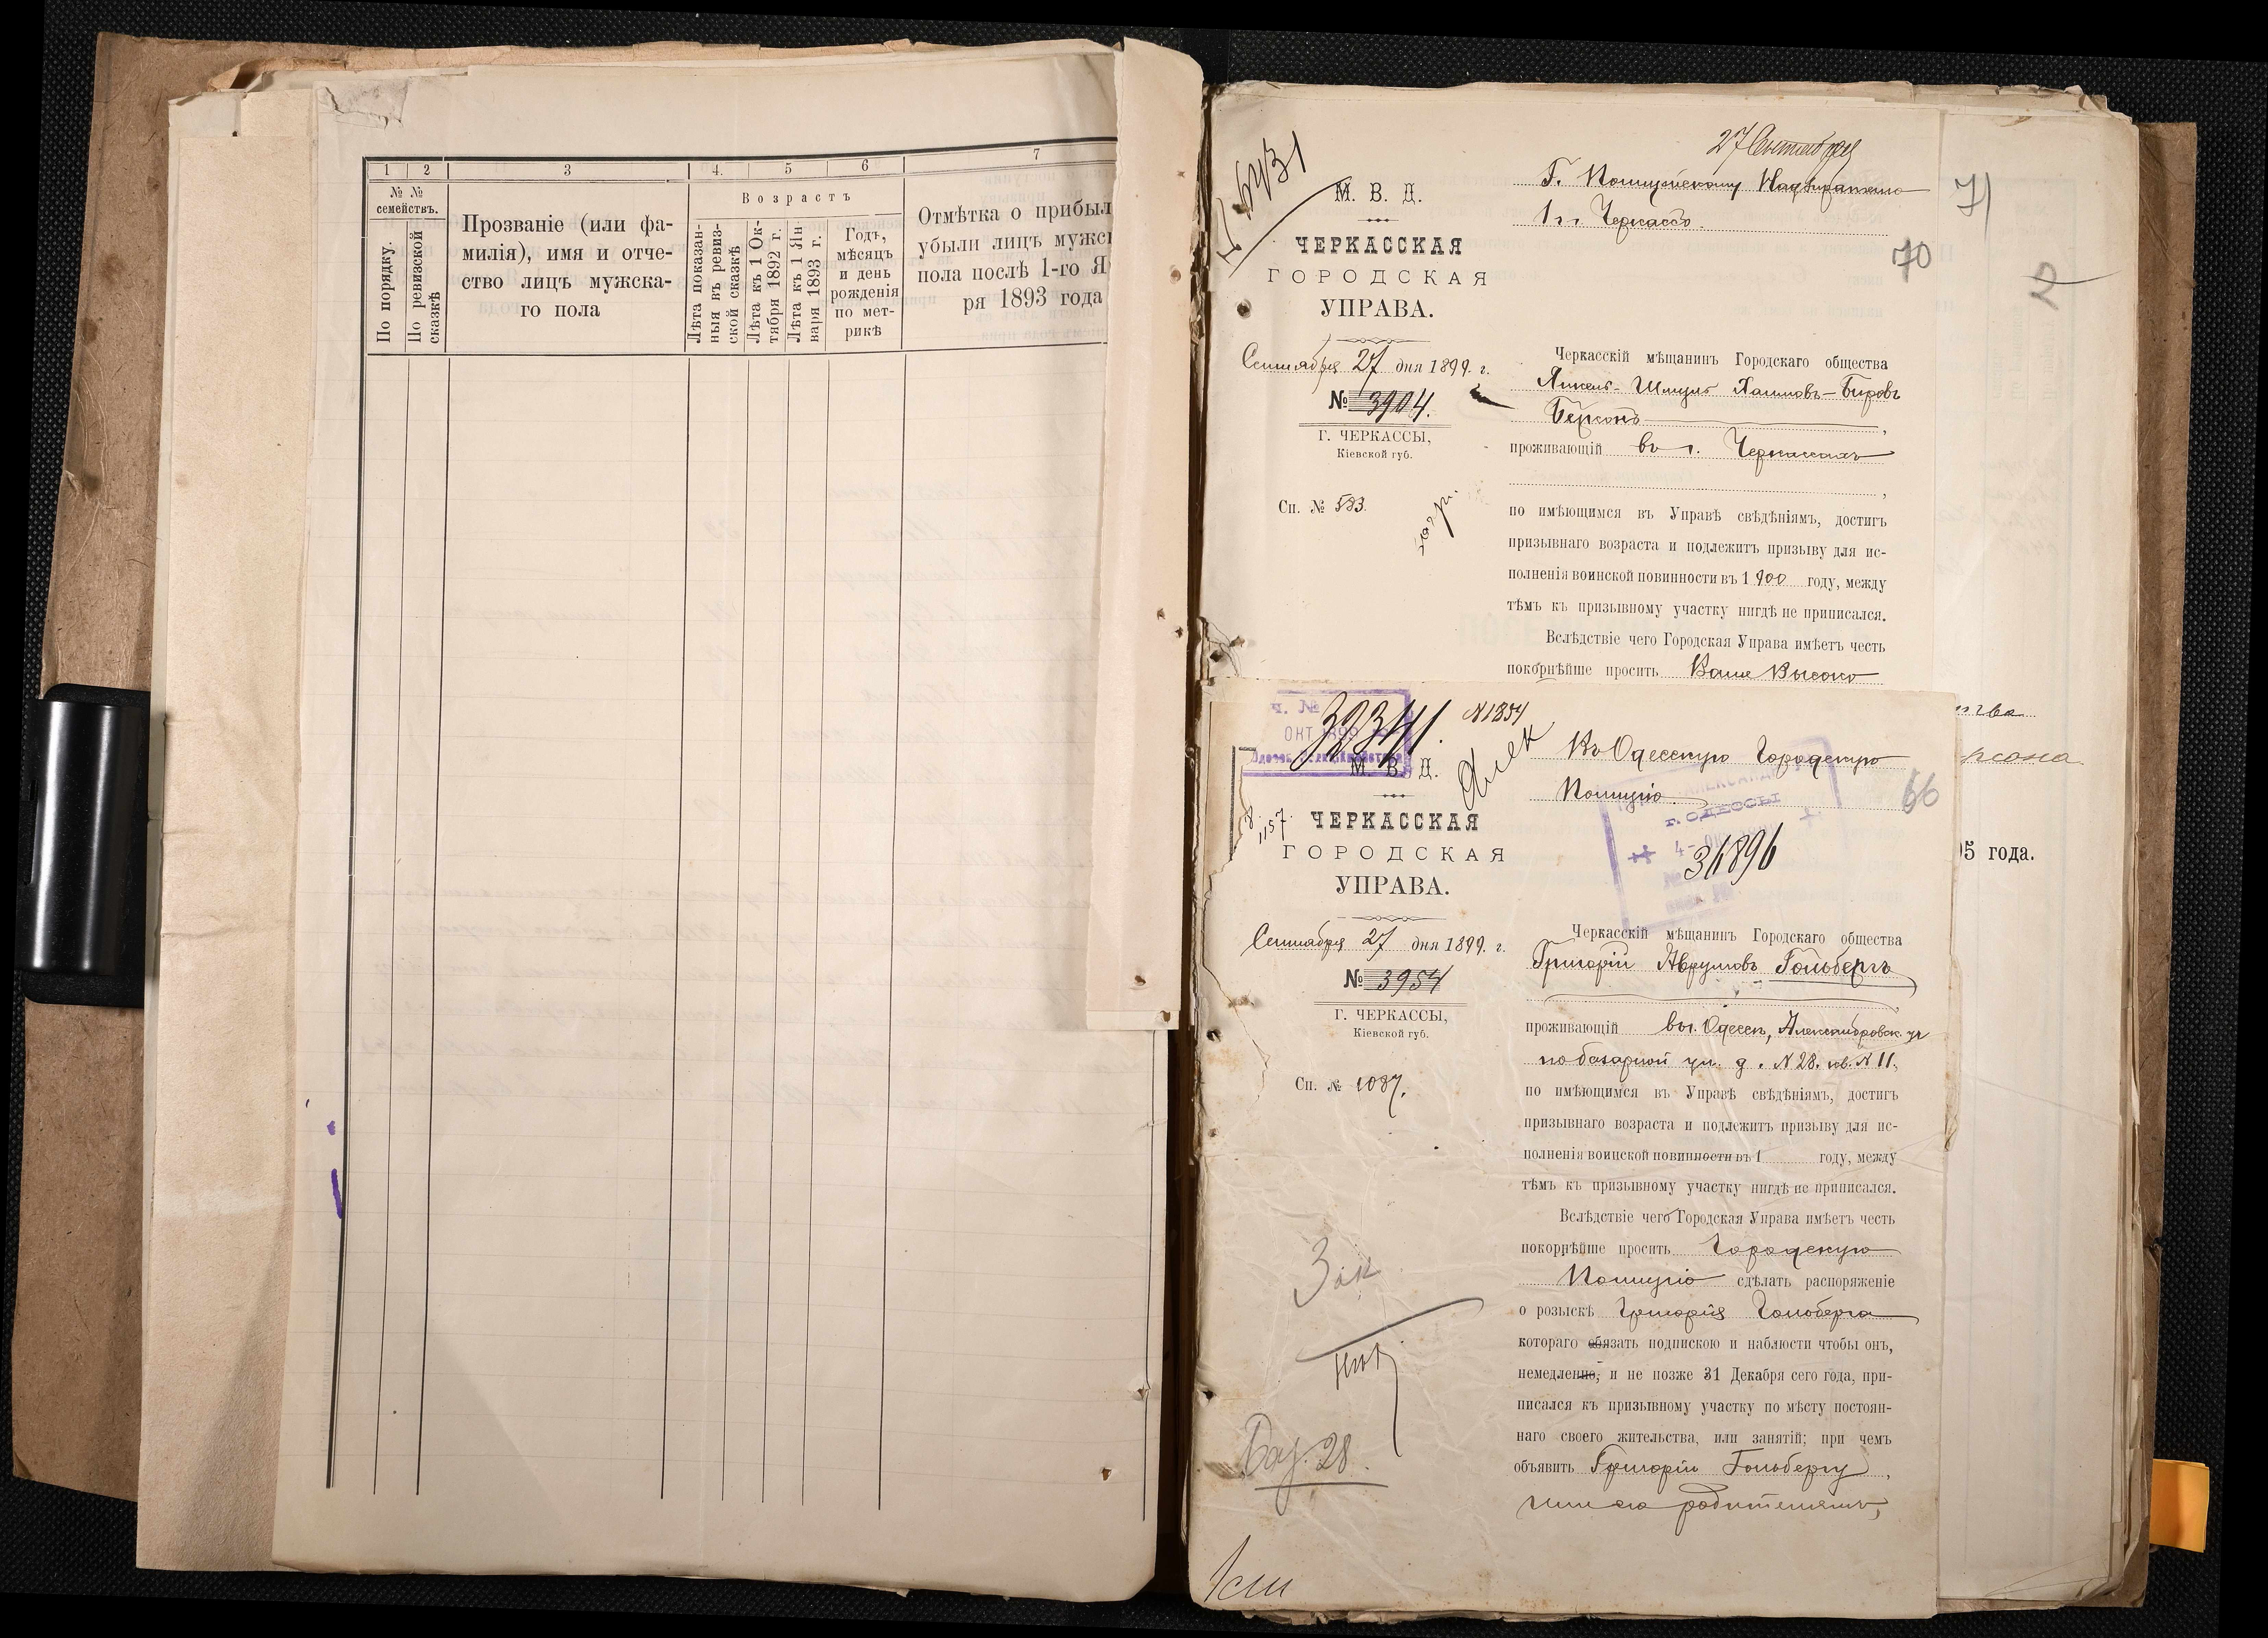 1 2 3 4. 5 6 7
№ № семействъ.
По порядку.
По ревизской сказкѣ
Прозваніе (или фа-
милія), имя и отче-
ство лицъ мужска-
го пола
Возрастъ
Лѣта показан-
ныя въ ревиз-
ской сказкѣ
Лѣта къ 1 Ок-
тября 1892 г.
Лѣта къ 1 Ян-
варя 1893 г.
Годъ,
мѣсяцъ
и день
рожденія
по мет-
рикѣ
Отмѣтка о прибыл
убыли лицъ мужс
пола послѣ 1-го Я
ря 1893 года
27 Сентября
Г. Полицейскому Надзирателю
1 ч. г. Черкассъ.
70
М. В. Д.
ЧЕРКАССКАЯ
ГОРОДСКАЯ
УПРАВА.
Сентября 27 дня 1899. г.
№ 3904.
Г. ЧЕРКАССЫ,
Кіевской губ.
Сп. № 583.
Черкасскій мѣщанинъ Городскаго общества
Янкель-Шмуль Хаимовъ-Беровъ
Берсонъ,
проживающій въ г. Черкассахъ,
по имѣющимся въ Управѣ свѣдѣніямъ, достигъ
призывнаго возраста и подлежитъ призыву для ис-
полненія воинской повинности въ 1900 году, между
тѣмъ къ призывному участку нигдѣ не приписался.
Вслѣдствіе чего Городская Управа имѣетъ честь
покорнѣйше просить Ваше Высоко
ч. №
ОКТ 1899
32341.
N 1854
Алек
Въ Одесскую Городскую
Полицію.
66
г. ОДЕССЫ
36896
1157.
М. В. Д.
ЧЕРКАССКАЯ
ГОРОДСКАЯ
УПРАВА.
Сентября 27 дня 1899. г.
№ 3954
Г. ЧЕРКАССЫ,
Кіевской губ.
Сп. № 1087.
Черкасскій мѣщанинъ Городскаго общества
Григорій Аврумовъ Гольбергъ
проживающій въ г. Одессѣ, Александровск. уч
по базарной ул. д. N 28. кв. N 11.
по имѣющимся въ Управѣ свѣдѣніямъ, достигъ
призывнаго возраста и подлежитъ призыву для ис-
полненія воинской повинности въ 1 году, между
тѣмъ къ призывному участку нигдѣ не приписался.
Вслѣдствіе чего Городская Управа имѣетъ честь
покорнѣйше просить Городскую
Полицію сдѣлать распоряженіе
о розыскѣ Григорія Гольберга
котораго обязать подпискою и наблюсти чтобы онъ,
немедленно, и не позже 31 Декабря сего года, при-
писался къ призывному участку по мѣсту постоян-
наго своего жительства, или занятій; при чемъ
объявить Григорію Гольбергу,
или его родителямъ,
Баз. 28
рсона
05 года.